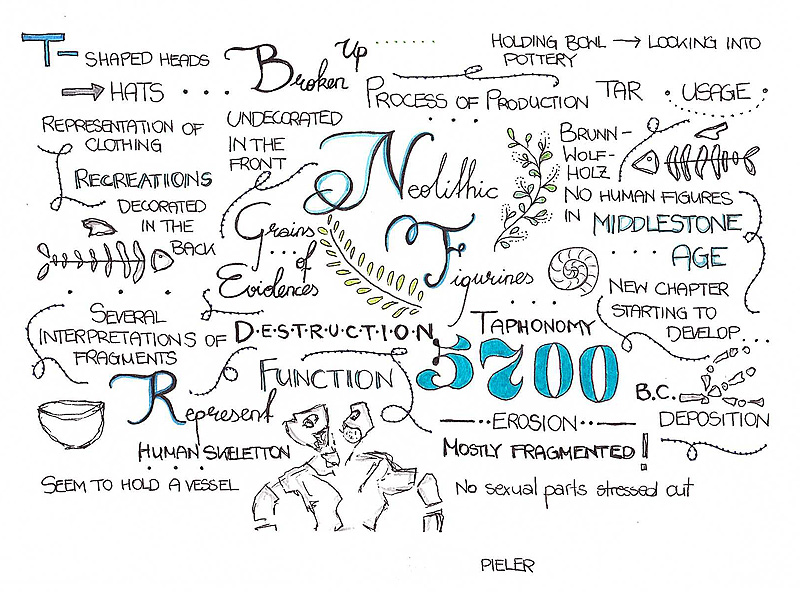 T- SHAPED HEADS
→ HATS ...
Broken up
HOLDING BOWL → LOOKING INTO
POTTERY
PROCESS OF PRODUCTION
TAR USAGE
REPRESENTATION OF
CLOTHING
RECREATIIONS
DECORATED
IN THE
BACK
UNDECORATED
IN THE
FRONT
Neolithic
Figurines
BRUNN-
WOLF-
HOLZ
NO HUMAN FIGURES
IN MIDDLESTONE
AGE
Grains
of
Evidences
NEW CHAPTER
STARTING TO
DEVELOP...
SEVERAL
INTERPRETATIONS OF
FRAGMENTS
D·E·S·T·R·U·C·T·I·O·N
TAPHONOMY
5700 B.C.
FUNCTION
Represent
HUMAN SKELETTON
SEEM TO HOLD A VESSEL
EROSION
DEPOSITION
MOSTLY FRAGMENTED!
No sexual parts stressed out
PIELER